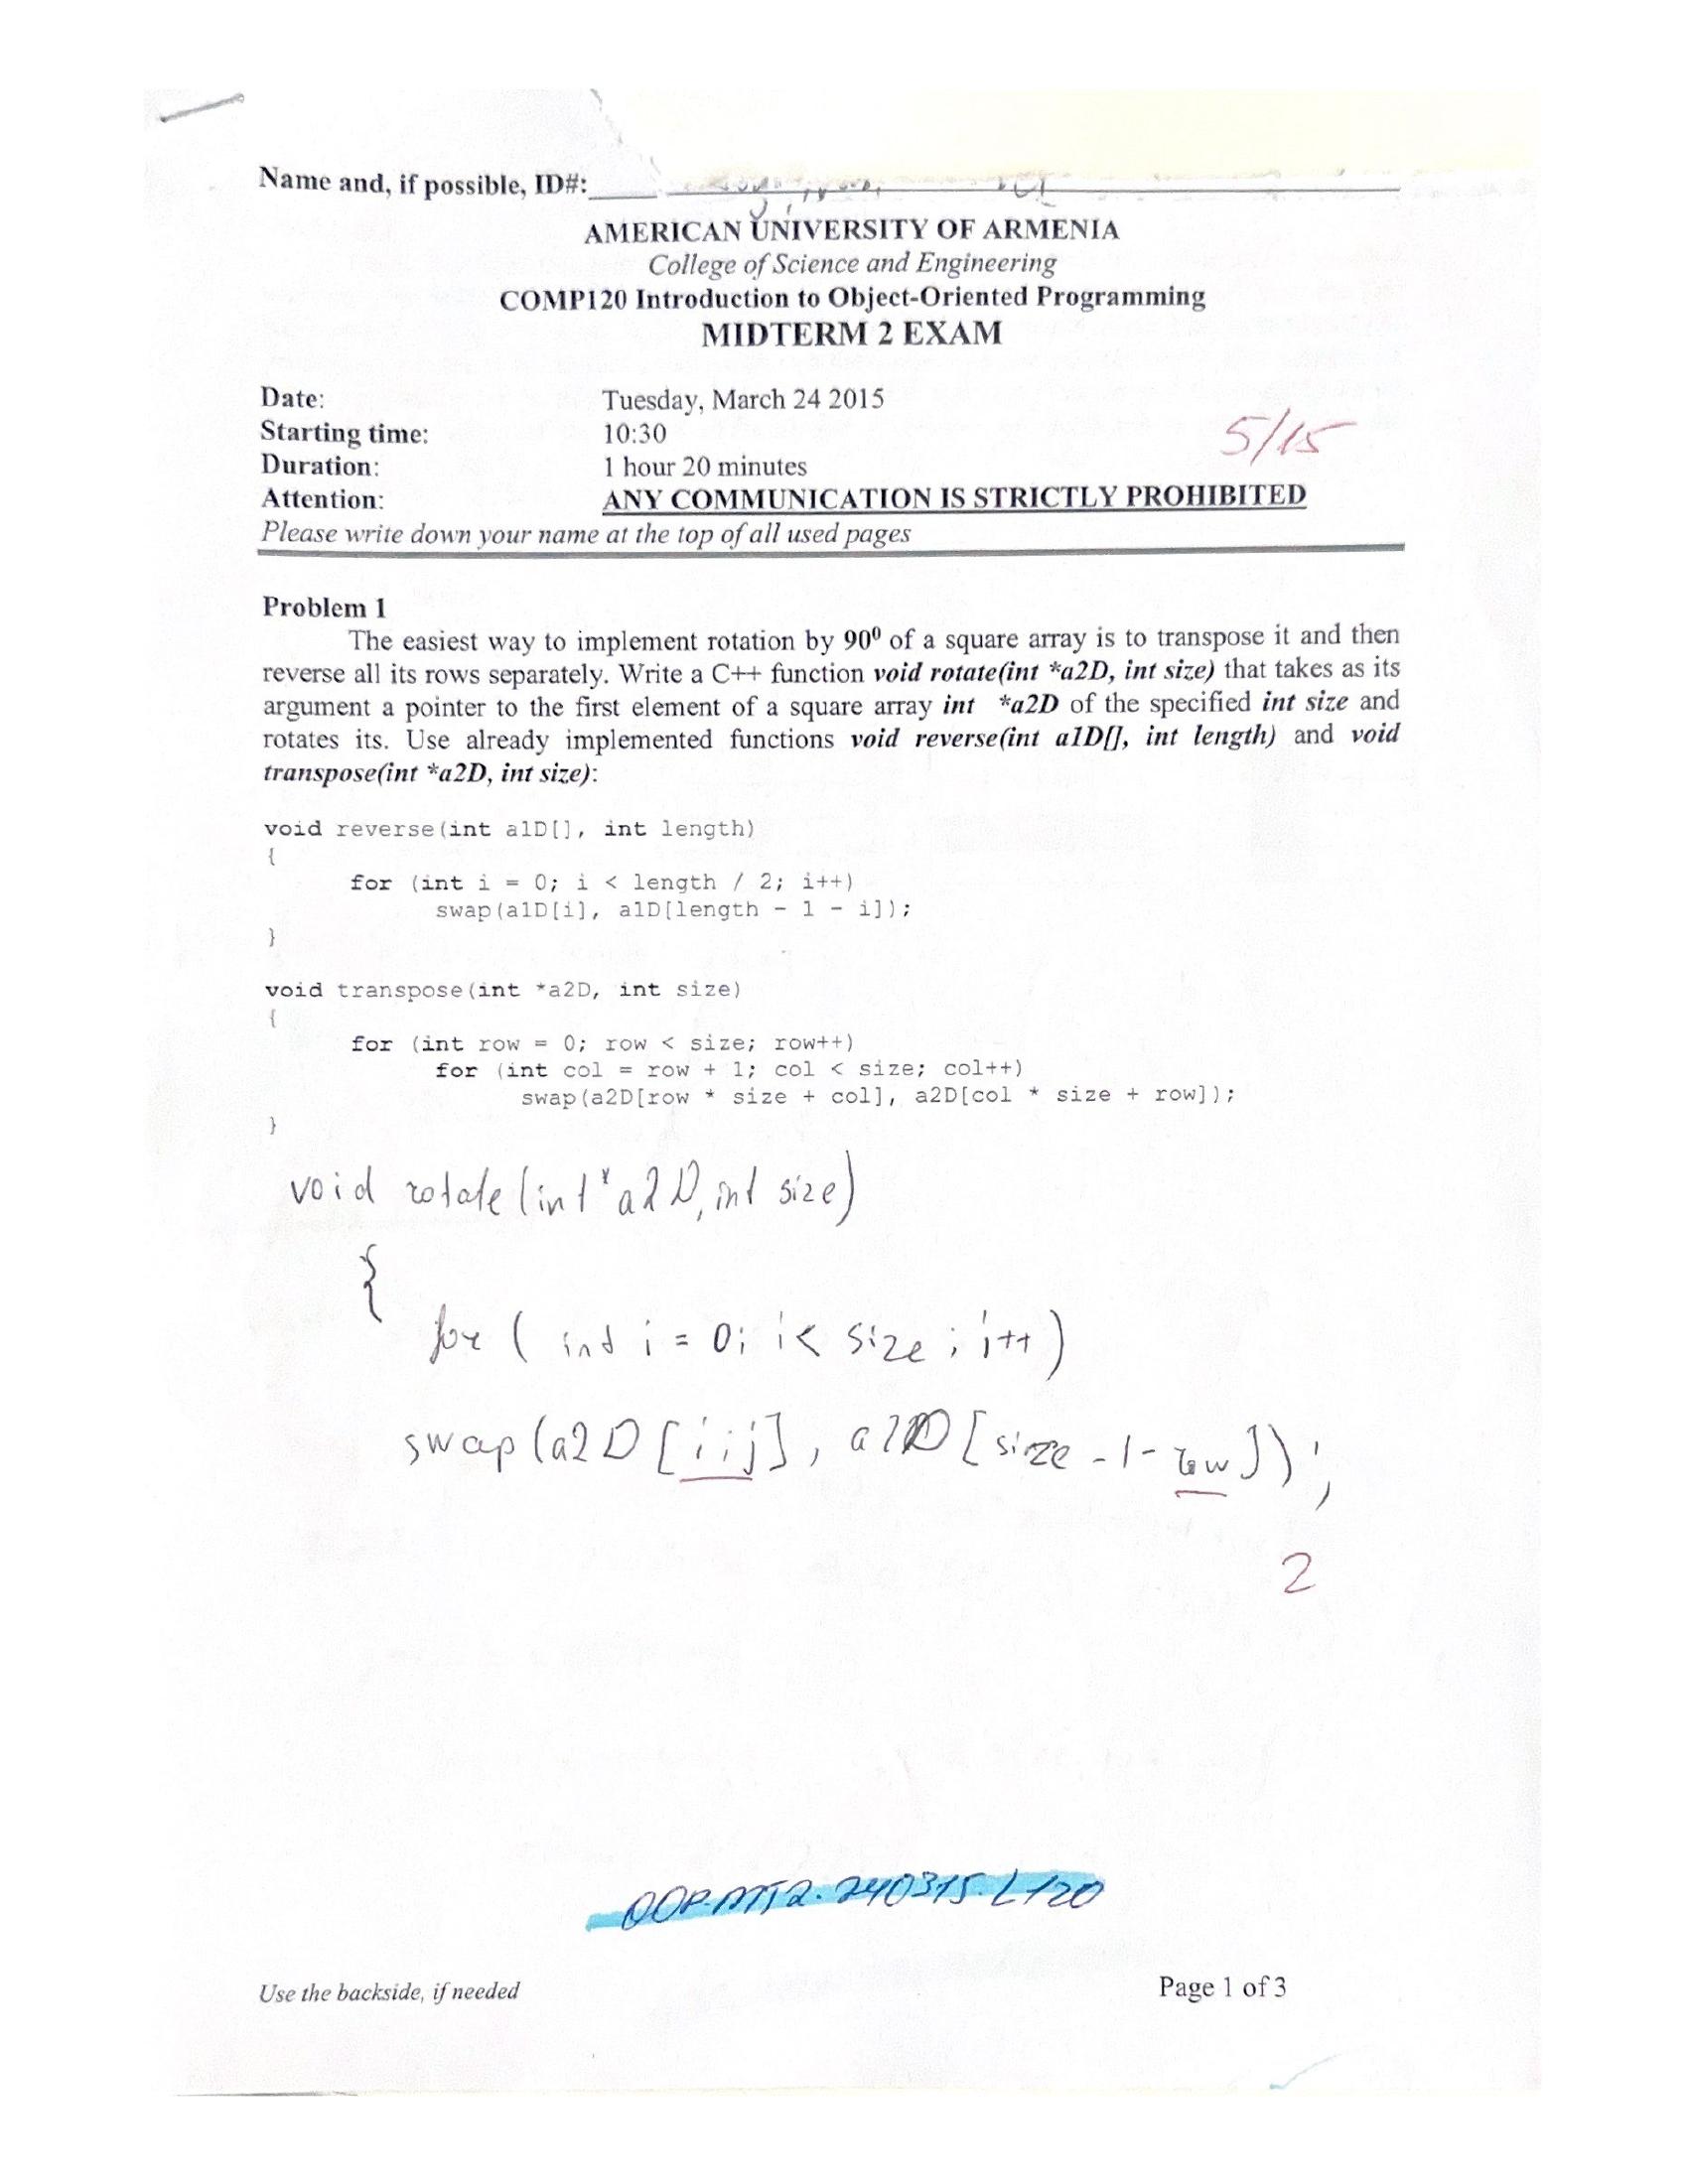 Name and, if possible, ID#:
AMERICAN UNIVERSITY OF ARMENIA
College of Science and Engineering
COMP120 Introduction to Object-Oriented Programming
MIDTERM 2 EXAM
Date: Tuesday, March 24 2015
5/15
Starting time: 10:30
Duration: 1 hour 20 minutes
Attention: ANY COMMUNICATION IS STRICTLY PROHIBITED
Please write down your name at the top of all used pages
Problem 1
The easiest way to implement rotation by 90⁰ of a square array is to transpose it and then
reverse all its rows separately. Write a C++ function void rotate(int *a2D, int size) that takes as its
argument a pointer to the first element of a square array int *a2D of the specified int size and
rotates its. Use already implemented functions void reverse(int a1D[], int length) and void
transpose(int *a2D, int size):
void reverse(int a1D[], int length)
{
for (int i = 0; i < length / 2; i++)
swap(a1D[i], a1D[length - 1 - i]);
}
void transpose(int *a2D, int size)
{
for (int row = 0; row < size; row++)
for (int col = row + 1; col < size; col++)
swap(a2D[row * size + col], a2D[col * size + row]);
}
void rotate(int *a2D, int size)
{
for ( int i = 0; i < size ; i++)
swap(a2D[i;j], a2D[size -1- row]);
2
OOP.MT2.240315.L120
Use the backside, if needed Page 1 of 3